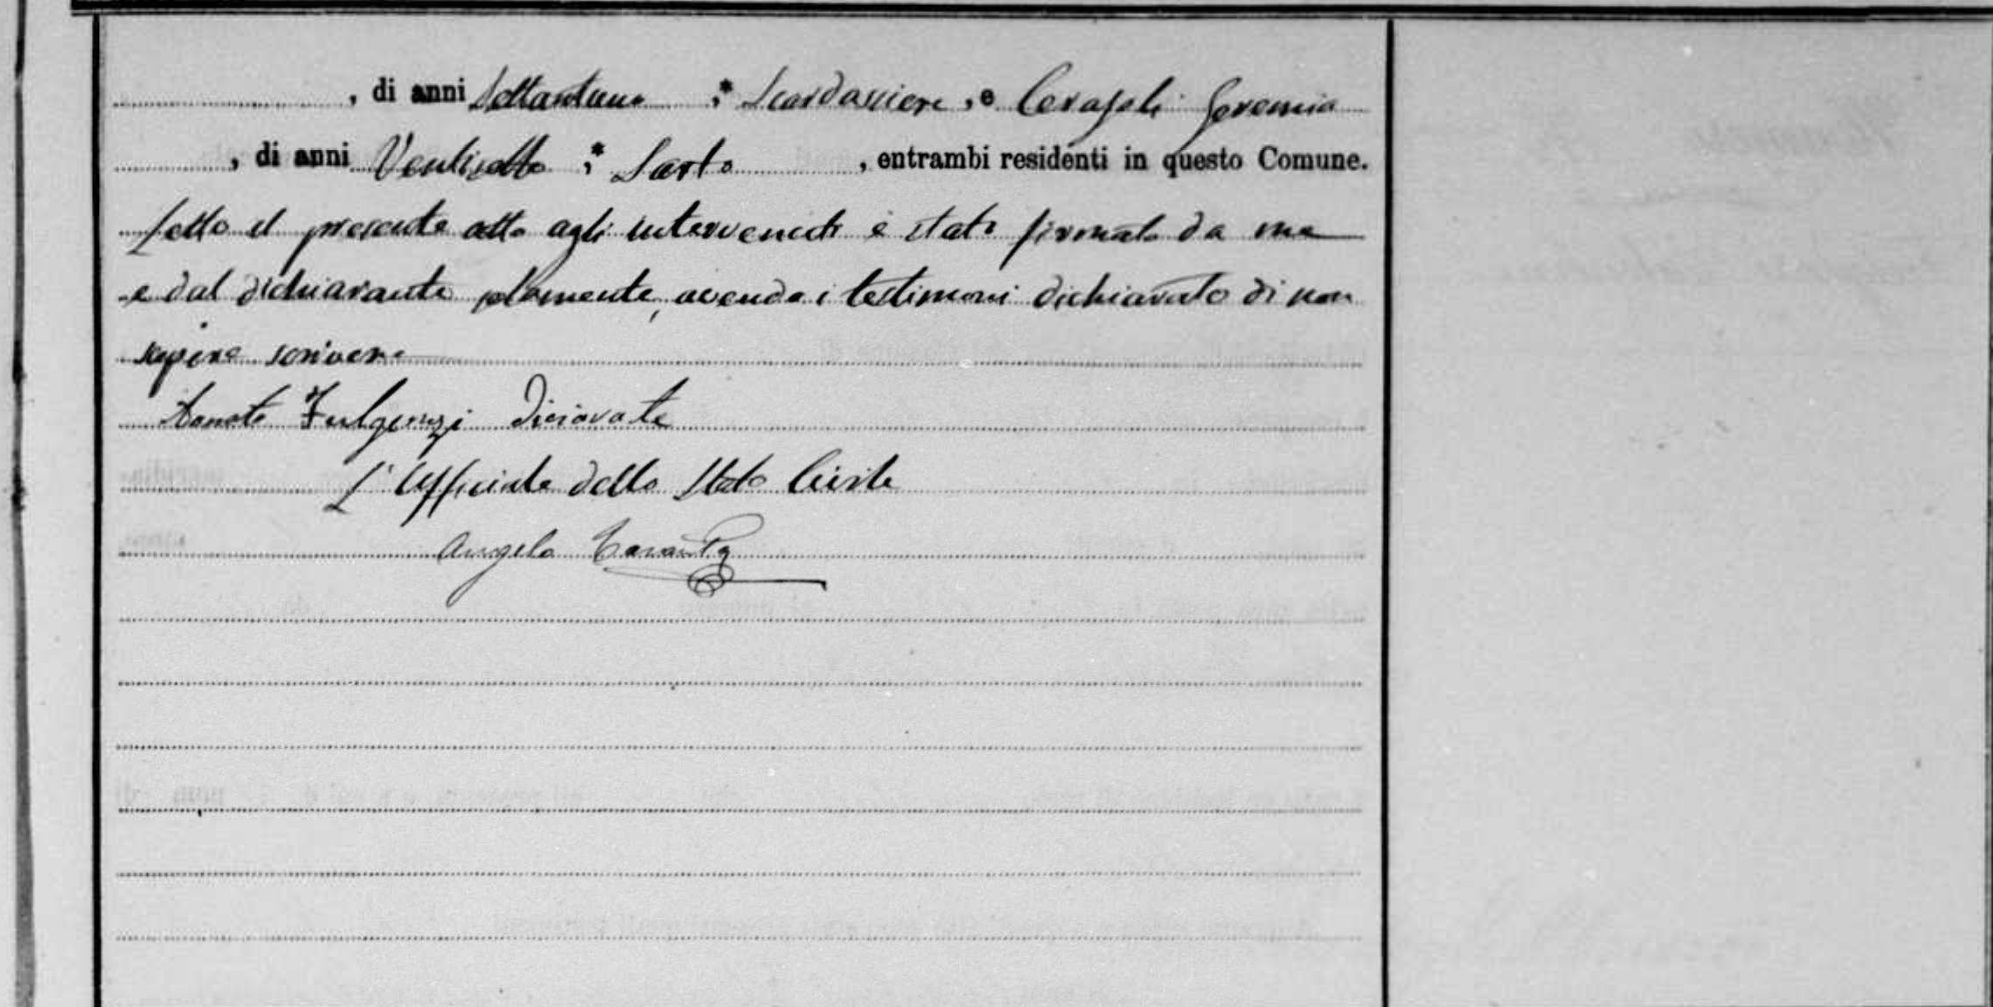 , di anni Settantuno , * Scardassiere , e Cerasoli Geremia
, di anni Ventisette , * Sarto , entrambi residenti in questo Comune.
Letto il presente atto agli intervenuti è stato firmato da me
e dal dichiarante solamente, avendo i testimoni dichiarato di non
sapere scrivere
Donato Fulgenzi diciarate
L'Ufficiale dello Stato Civile
Angelo Taranta